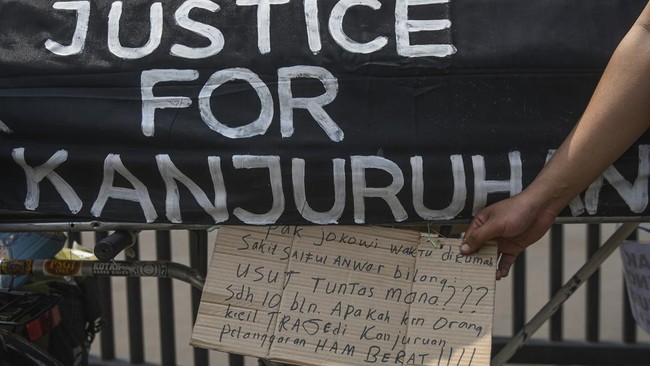 JUSTICE
FOR
KANJURUHAN
Pak Jokowi waktu dirumah
Sakit Saiful Anwar bilang:
Usut Tuntas mana???
Sdh 10 bln. Apakah krn Orang
kecil TRAGeDi Kanjuruan
pelanggaran HAM BERAT !!!!
KOTA